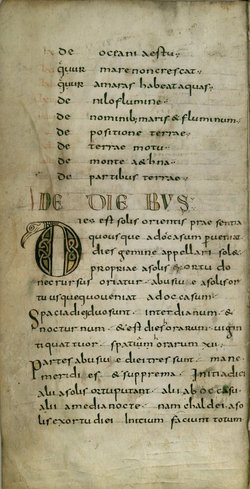 de oceani aestu
q̄uur mare non crescat
quur amaras habeat aquas
de nilo flumine
de nominib; maris & fluminum
de positione terrae
de terrae motu
de monte aethna
de partibus terrae
DE DIEBUS
Dies est solis orientis praesentia
quousque ad occasum perveniat
dies gemine appellari sole
propriae a solis exortu do
nec rursus oriatur abusive a solis or
tu usque quo veniat ad occasum
Spatia diei duo sunt interdianum &
nocturnum & est dies horarum vigin
ti quattuor spatium orarum XII
Partes abusivi diei tres sunt mane
meridies & suprema Initia diei
alii a solis ortu putant alii ab occasu
alii a media nocte nam chaldei a so
lis exortu diei initium faciunt totum